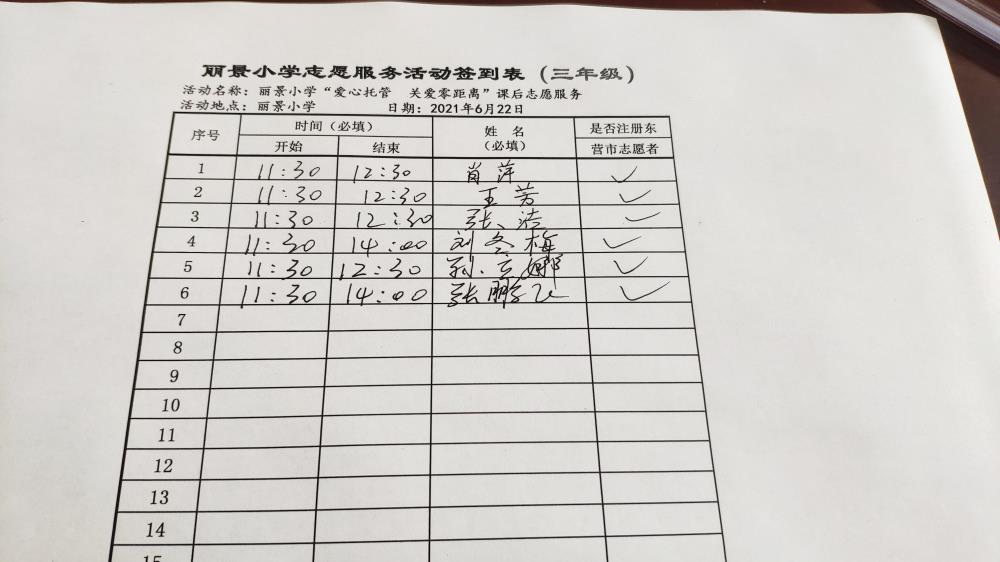 丽景小学志愿服务活动签到表（三年级）
活动名称：丽景小学“爱心托管 关爱零距离”课后志愿服务
活动地点：丽景小学 日期：2021年6月22日
序号 时间（必填） 姓名（必填） 是否注册东营市志愿者
开始 结束
1 11:30 12:30 肖萍 ✓
2 11:30 12:30 王芳 ✓
3 11:30 12:30 张洁 ✓
4 11:30 14:00 刘冬梅 ✓
5 11:30 12:30 孙 娜 ✓
6 11:30 14:00 张鹏飞 ✓
7
8
9
10
11
12
13
14
15